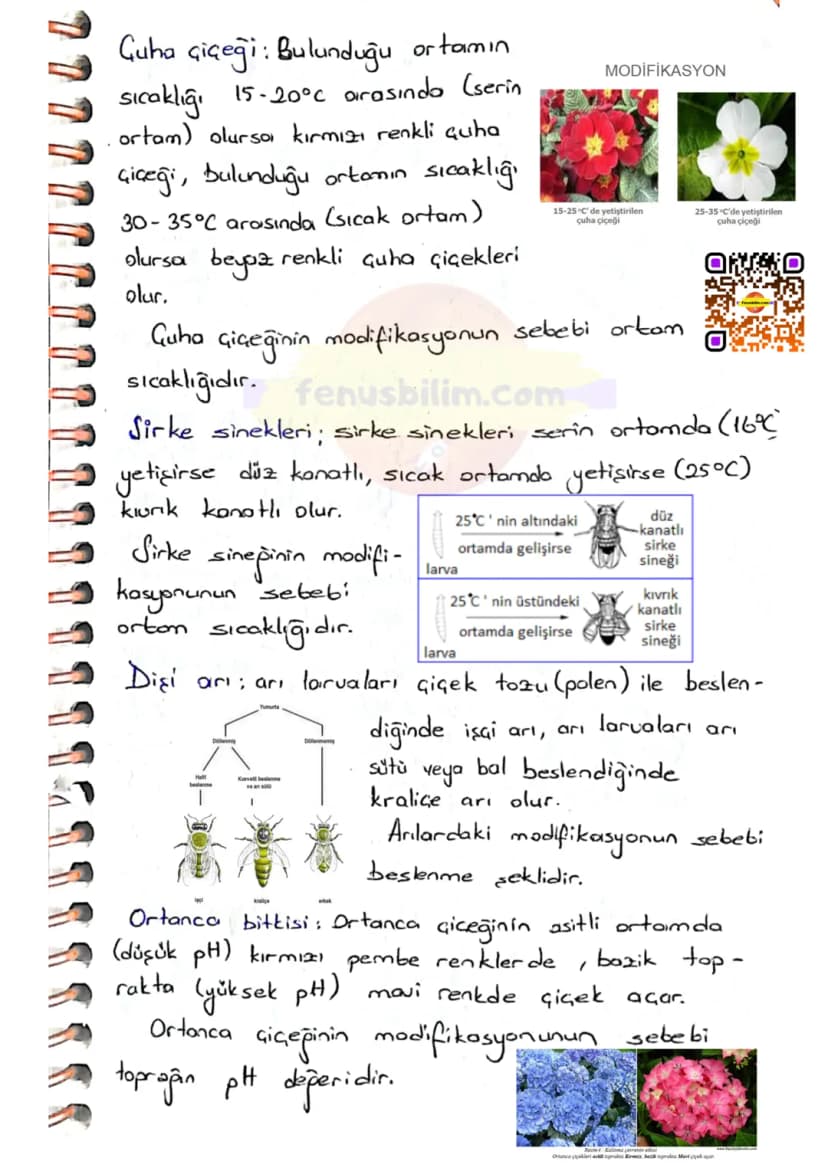 Çuha çiçeği: Bulunduğu ortamın
sıcaklığı 15-20°C arasında (serin
ortam) olursa kırmızı renkli çuha
çiçeği, bulunduğu ortamın sıcaklığı
30-35°C arasında (sıcak ortam)
olursa beyaz renkli çuha çiçekleri
olur.
MODİFİKASYON
15-25 °C' de yetiştirilen
çuha çiçeği
25-35 °C'de yetiştirilen
çuha çiçeği
Fenusbilim.com
Çuha çiçeğinin modifikasyonun sebebi ortam
sıcaklığıdır.
fenusbilim.com
Sirke sinekleri; sirke sinekleri serin ortamda (16°C
yetişirse düz kanatlı, sıcak ortamda yetişirse (25°C)
kıvrık kanatlı olur.
Sirke sineğinin modifi-
kasyonunun sebebi
ortam sıcaklığıdır.
25℃ ' nin altındaki
ortamda gelişirse
larva
düz
kanatlı
sirke
sineği
25℃ ' nin üstündeki
ortamda gelişirse
larva
kıvrık
kanatlı
sirke
sineği
Dişi arı; arı larvaları çiçek tozu (polen) ile beslen-
diğinde işçi arı, arı larvaları arı
sütü veya bal beslendiğinde
kraliçe arı olur.
Arılardaki modifikasyonun sebebi
beslenme şeklidir.
Yumurta
Döllenmiş
Döllenmemiş
Hafif
beslenme
Kuvvetli beslenme
ve arı sütü
işçi
kraliçe
erkek
Ortanca bitkisi: Ortanca çiçeğinin asitli ortamda
(düşük pH) kırmızı pembe renklerde , bazik top-
rakta (yüksek pH) mavi renkde çiçek açar.
Ortanca çiçeğinin modifikasyonunun sebebi
toprağın pH değeridir.
Ortanca çiçekleri asidli topraqda Kırmızı, bazik topraqda Mavi çiçek açar